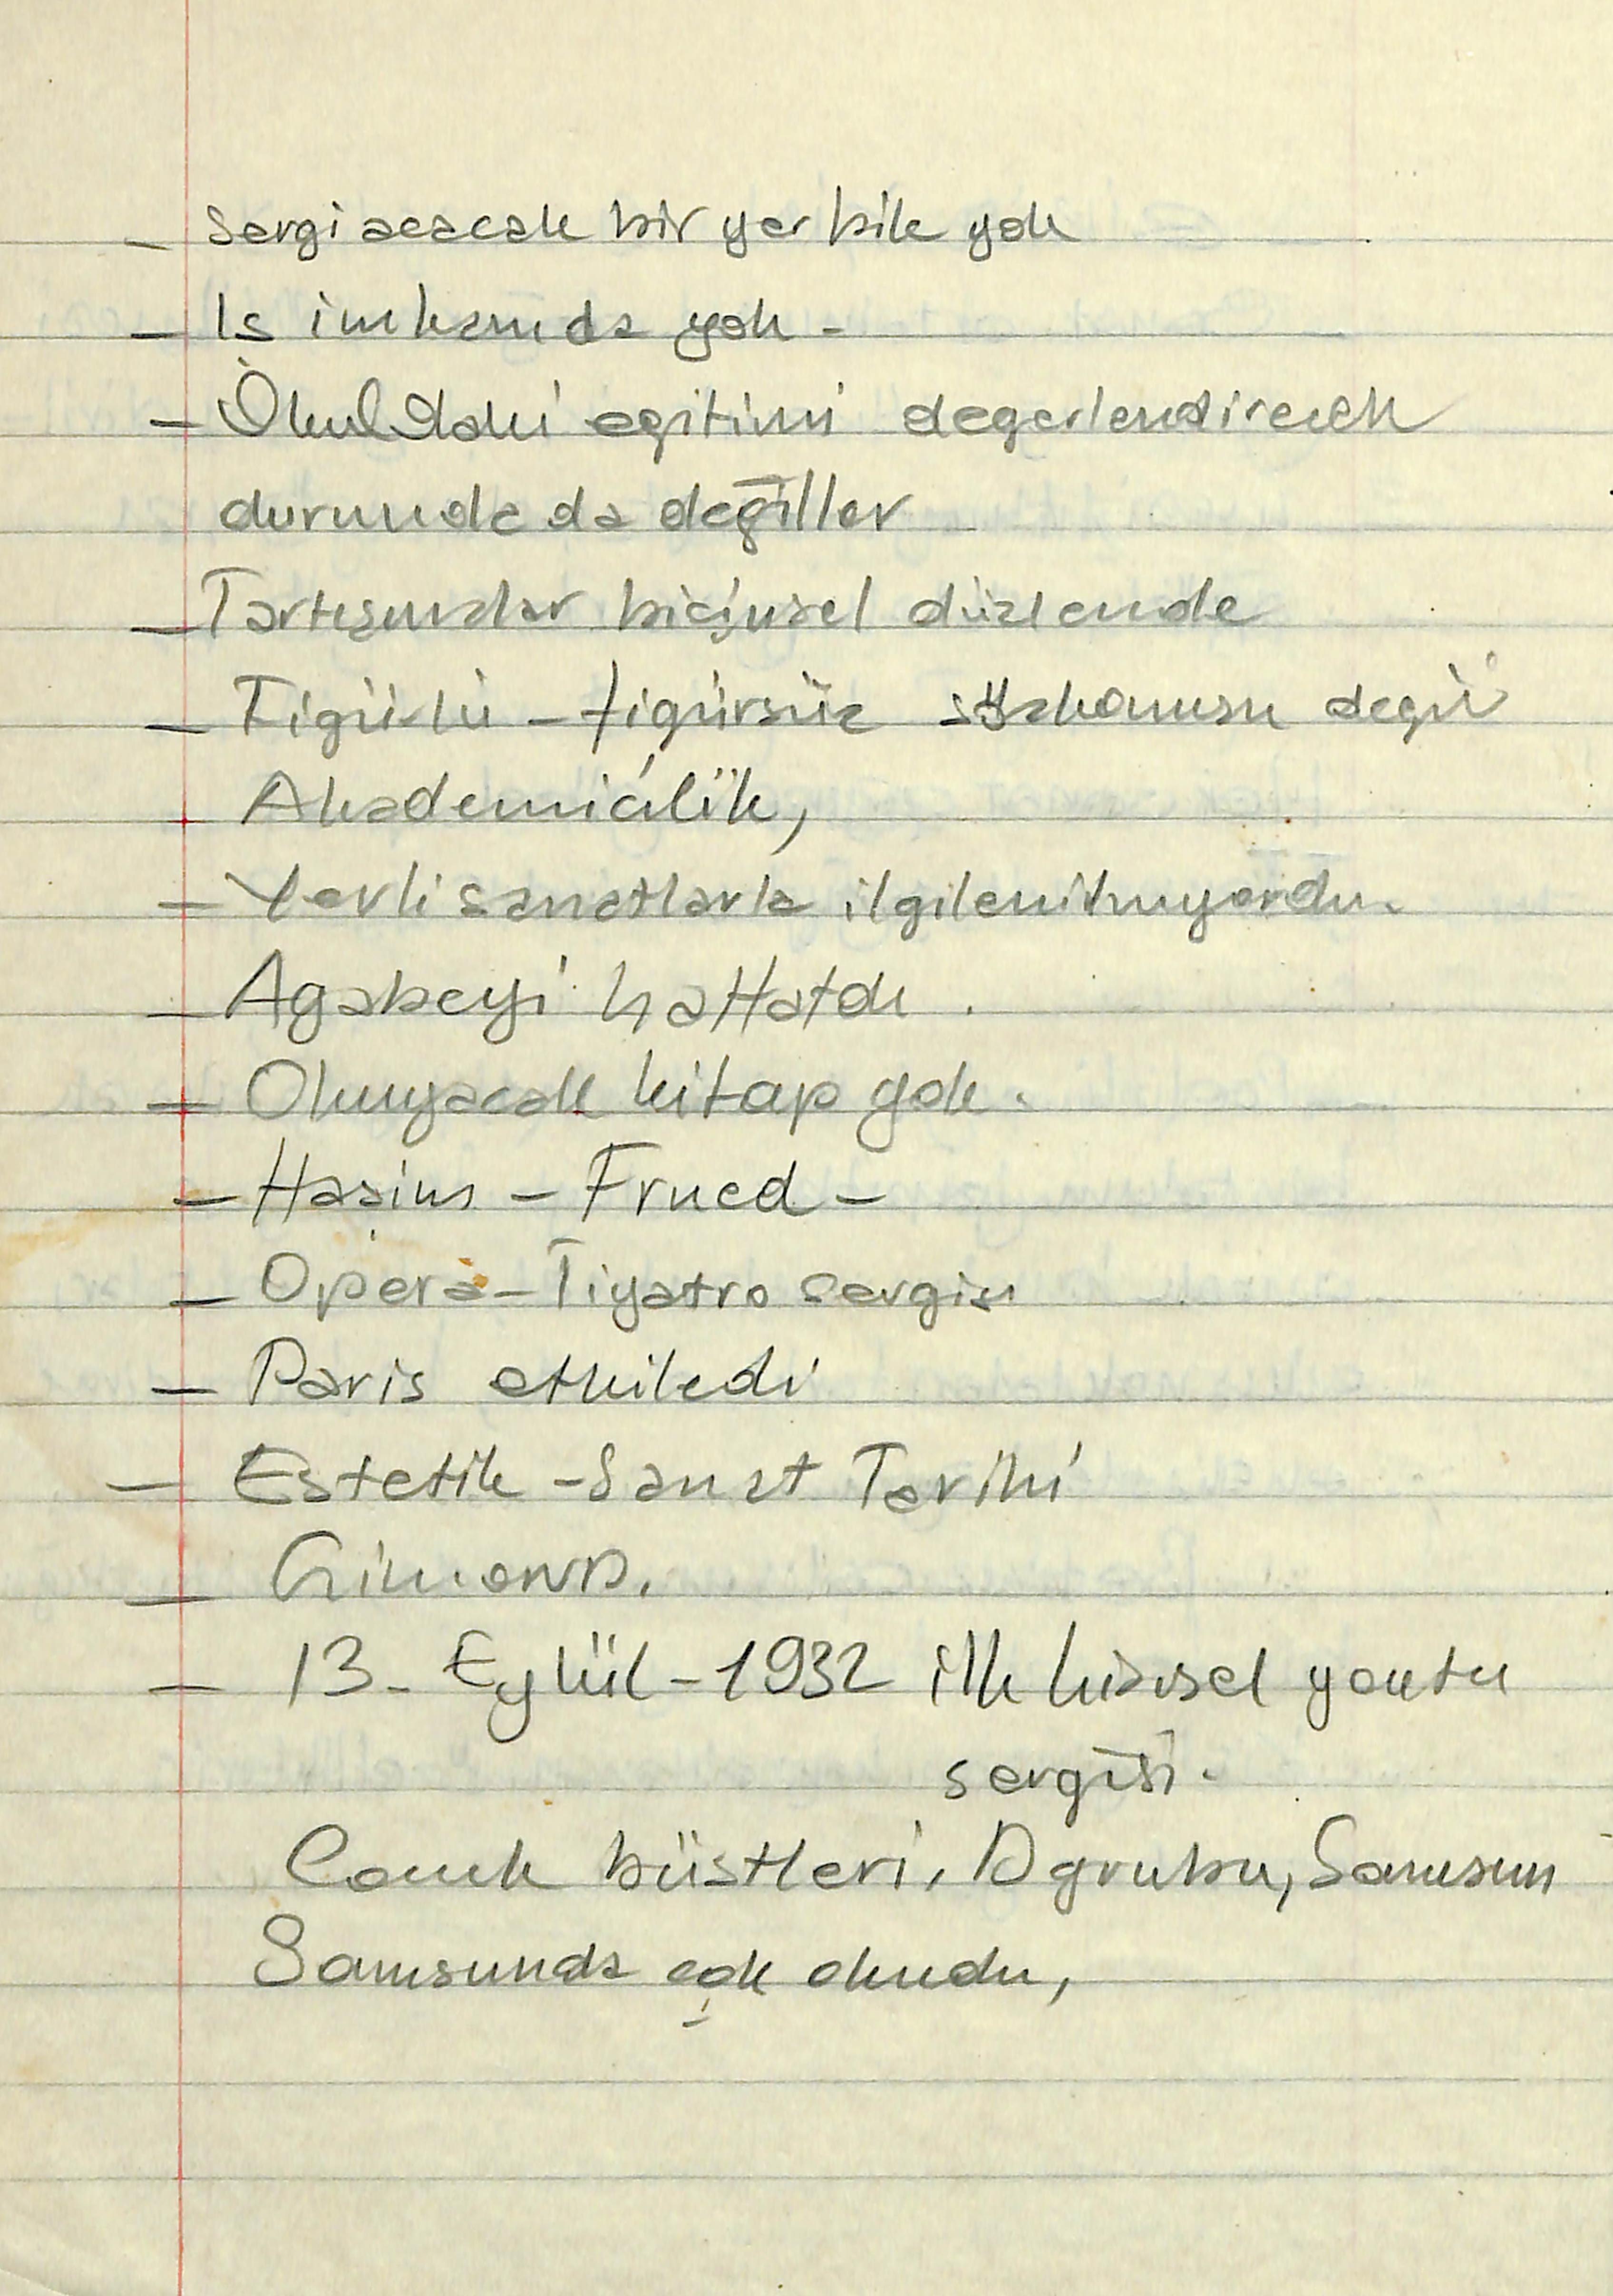 - Sergi acacak bir yer bile yok
- Is imkanıda yok -
- Okuldaki egitimi degerlendirecek
durumda da değiller
- Tartışmalar biçimsel düzlemde
- Figürlü - figürsüz sözkonusu degil
- Akademicilik,
- Yerli sanatlarla ilgilenilmiyordu.
- Agabeyi hattatdı.
- Okuyacak kitap yok.
- Hasim - Frued -
- Opera - Tiyatro sergisi
- Paris etkiledi
- Estetik - Sanat Tarihi
-
- 13 - Eylül - 1932 ilk kisisel yontu
sergisi.
Cocuk büstleri, D grubu, Samsun
Samsunda çok okudu,